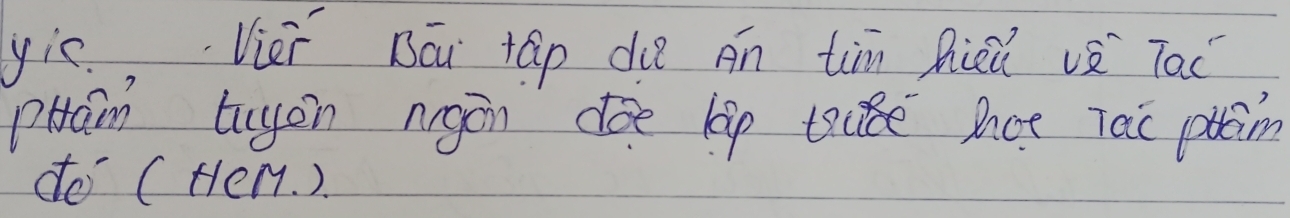 yic. Viết Bài tập dự Án tìm hiểu về Tác
phẩm tuyên ngôn độc lập trước học Tác phẩm
đó (HCM.).